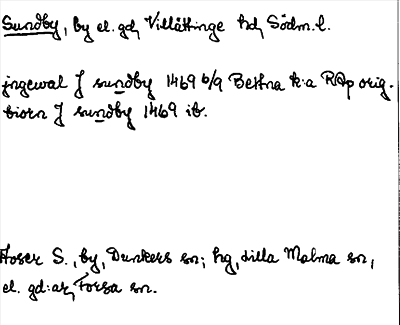 Sundby, by el. gd, Villåttinge hd, Södm. l.
jngewal J sundby 1469 6/9 Bettna k:a RAp orig.
biorn J sundby 1469 ib.
Avser S., by, Dunkers sn; hg, Lilla Malma sn,
el. gd:ar, Forsa sn.